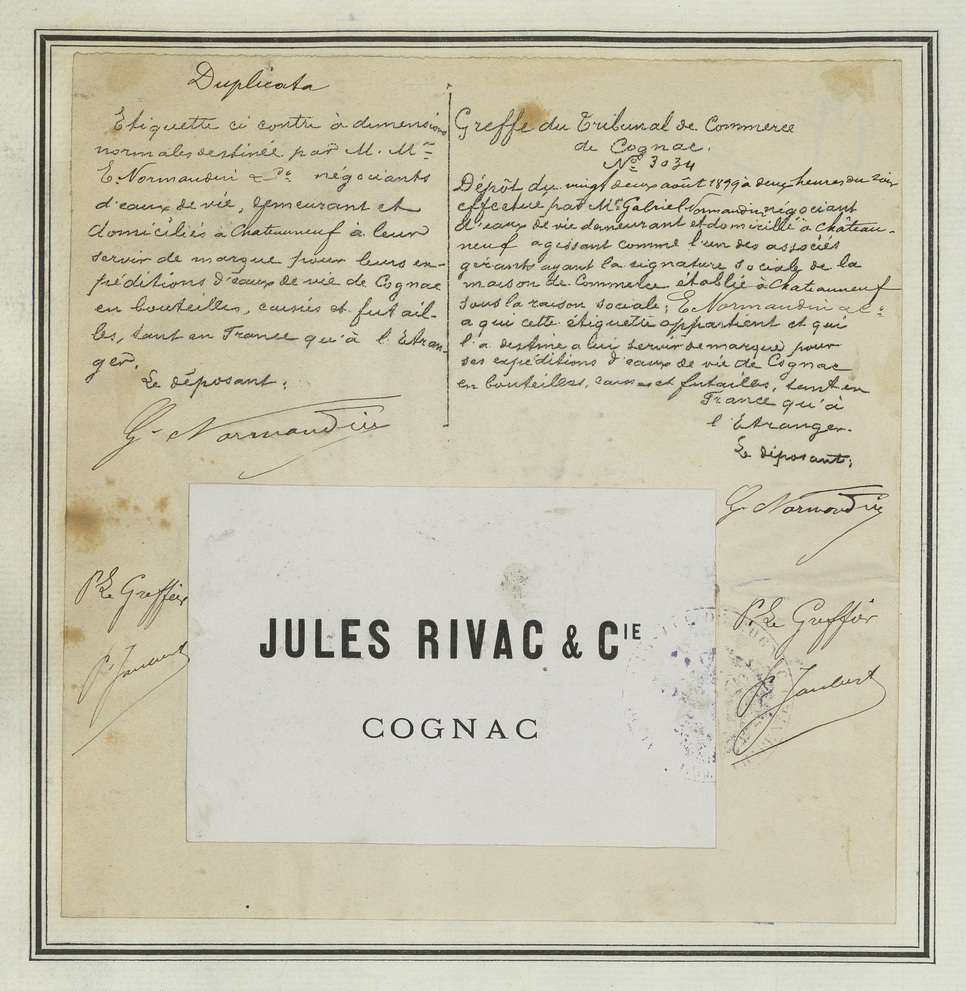 Duplicata
Etiquette ci contre à dimensions
normales destinée par M. Mrs
E. Normandin & Cie négociants
d'eaux de vie, demeurant et
domiciliés à Chateauneuf à leur
servir de marque pour leurs ex-
péditions d'eaux de vie de Cognac
en bouteilles, caisses et futail-
les, tant en France qu'à l'Etran-
ger.
Le déposant:
G. Normandin
Greffe du Tribunal de Commerce
de Cognac.
No 3034
Dépôt du vingt deux août 1899 à deux heures du soir
effectué par Mr Gabriel Normandin négociant
d'eaux de vie demeurant et domicilié à Château-
neuf agissant comme l'un des associés
gérants ayant la signature sociale de la
maison de Commerce établie à Chateauneuf
sous la raison sociale: E. Normandin & Cie
a qui cette étiquette appartient et qui
l'a destine a lui servir de marque pour
ses expéditions d'eaux de vie de Cognac
en bouteilles, caisses et futailles, tant en
France qu'à
l'Etranger.
Le déposant:
G. Normandin
Pr Le Greffier
P. Jaubert
JULES RIVAC & CIE
COGNAC
Pr Le Greffier
P. Jaubert